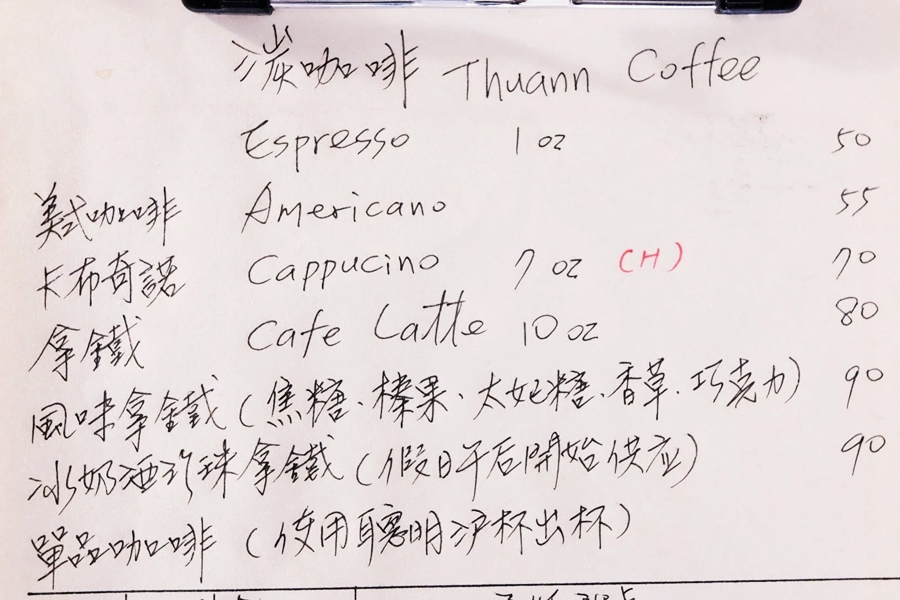 湠咖啡 Thuann Coffee
Espresso 1 oz 50
美式咖啡 Americano 55
卡布奇諾 Cappucino 7 oz (H) 70
拿鐵 Cafe Latte 10 oz 80
風味拿鐵(焦糖、榛果、太妃糖、香草、巧克力) 90
冰奶酒珍珠拿鐵(假日午后開始供应) 90
單品咖啡(使用聰明沪杯出杯)